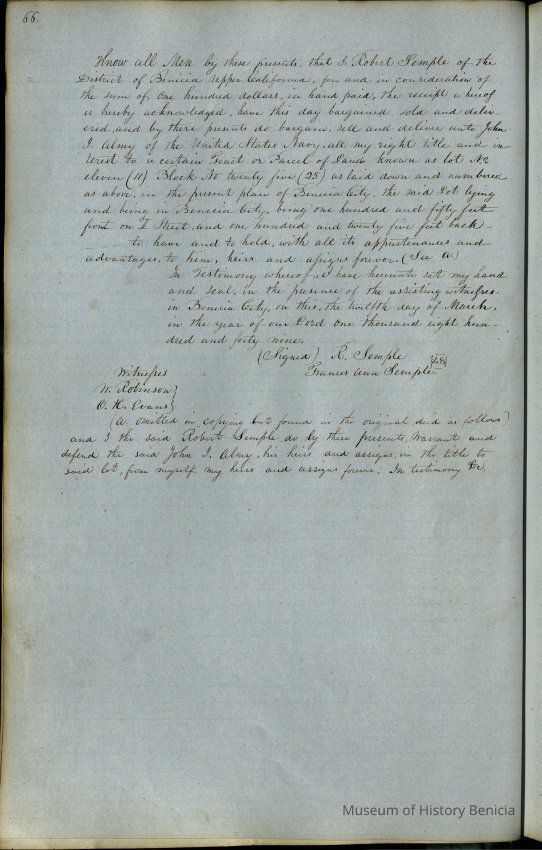 66.
Know all Men by these presents, that I Robert Semple of the
District of Benicia Upper California, for, and in consideration of
the sum of, One hundred dollars, in hand paid, the receipt whereof
is hereby acknowledged, have this day bargained sold and deliv-
ered, and by these presents do bargain, sell and deliver unto John
J. Almy of the United States Navy, all my right title and in-
terest to a certain Tract or Parcel of Land known as lot No
eleven (11) Block No twenty five (25) as laid down and numbered
as above, in the present plan of Benicia City, the said Lot lying
and being in Benicia City, being one hundred and fifty feet
front on Street, and one hundred and twenty five feet back -
to have and to hold, with all its appurtenances and
advantages, to him, heirs and assigns forever. (See a)
In Testimony whereof, I have hereunto set my hand
and seal, in the presence of the assisting witnesses.
in Benicia City, on this, the twelfth day of March,
in the year of our Lord One thousand eight hun-
dred and forty nine.
(Signed) R. Semple
Frances Ann Semple
Witnesses
W. Robinson}
O. K. Evans}
(A omitted in copying but found in the original deed as follows)
and I the said Robert Semple do by these presents, Warrant and
defend the said John J. Almy, his heirs and assigns, in the title to
said lot, from myself my heirs and assigns forever; In testimony &c
Museum of History Benicia